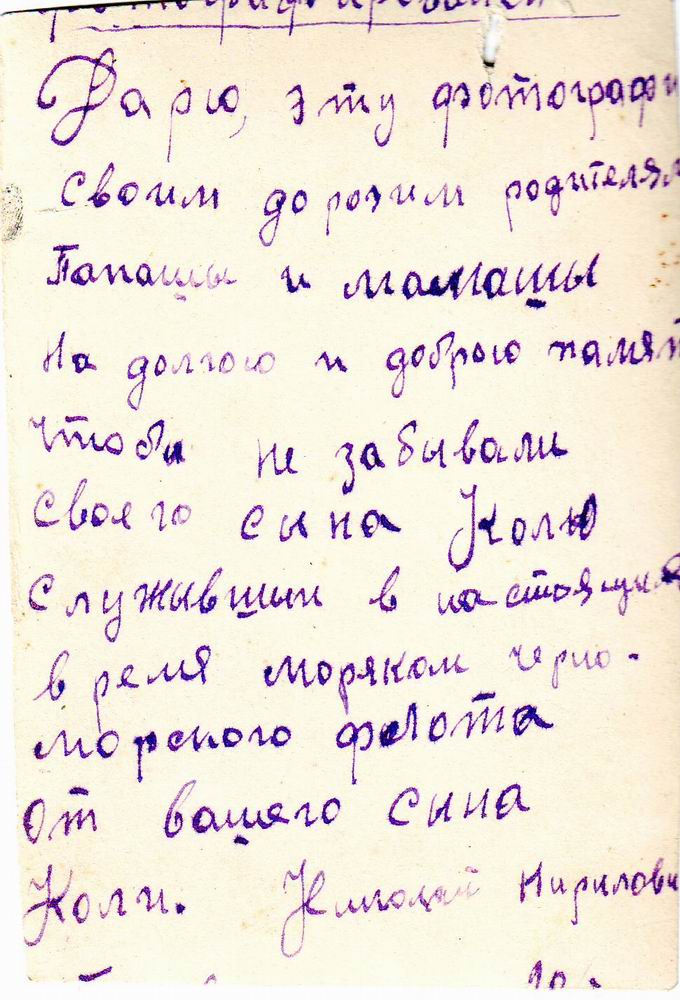 Дарю, эту фотографи
своим дорогим родителям
Папашы и мамашы
на долгою и доброю памят
чтобы не забывали
свояго сына Колю
служывшии в настоящия
время моряком черно-
морского флота
От вашего сына
Коли. Николай Кирилови